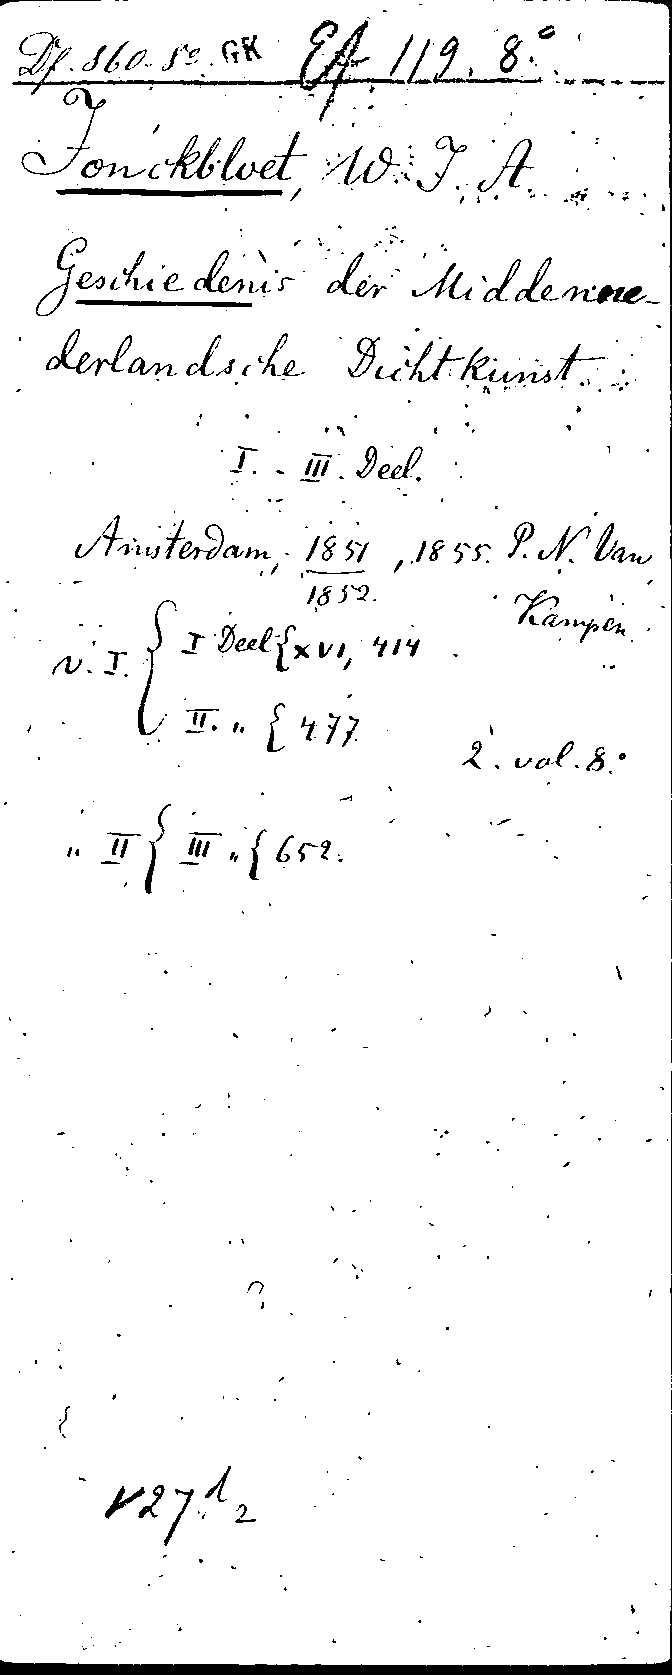 Df. 860. 8º. GK Ef 119. 8.º
Jonckbloet, W. J. A.
Geschiedenis der Middenne-
derlandsche Dichtkunst.
I. - III. Deel.
Amsterdam, 1851 , 1855. P. N. Van
1852. Kampen
v. I. { I Deel { XVI, 414
II. „ { 477
2. vol. 8.º
„ II { III „ { 652.
V27 d 2